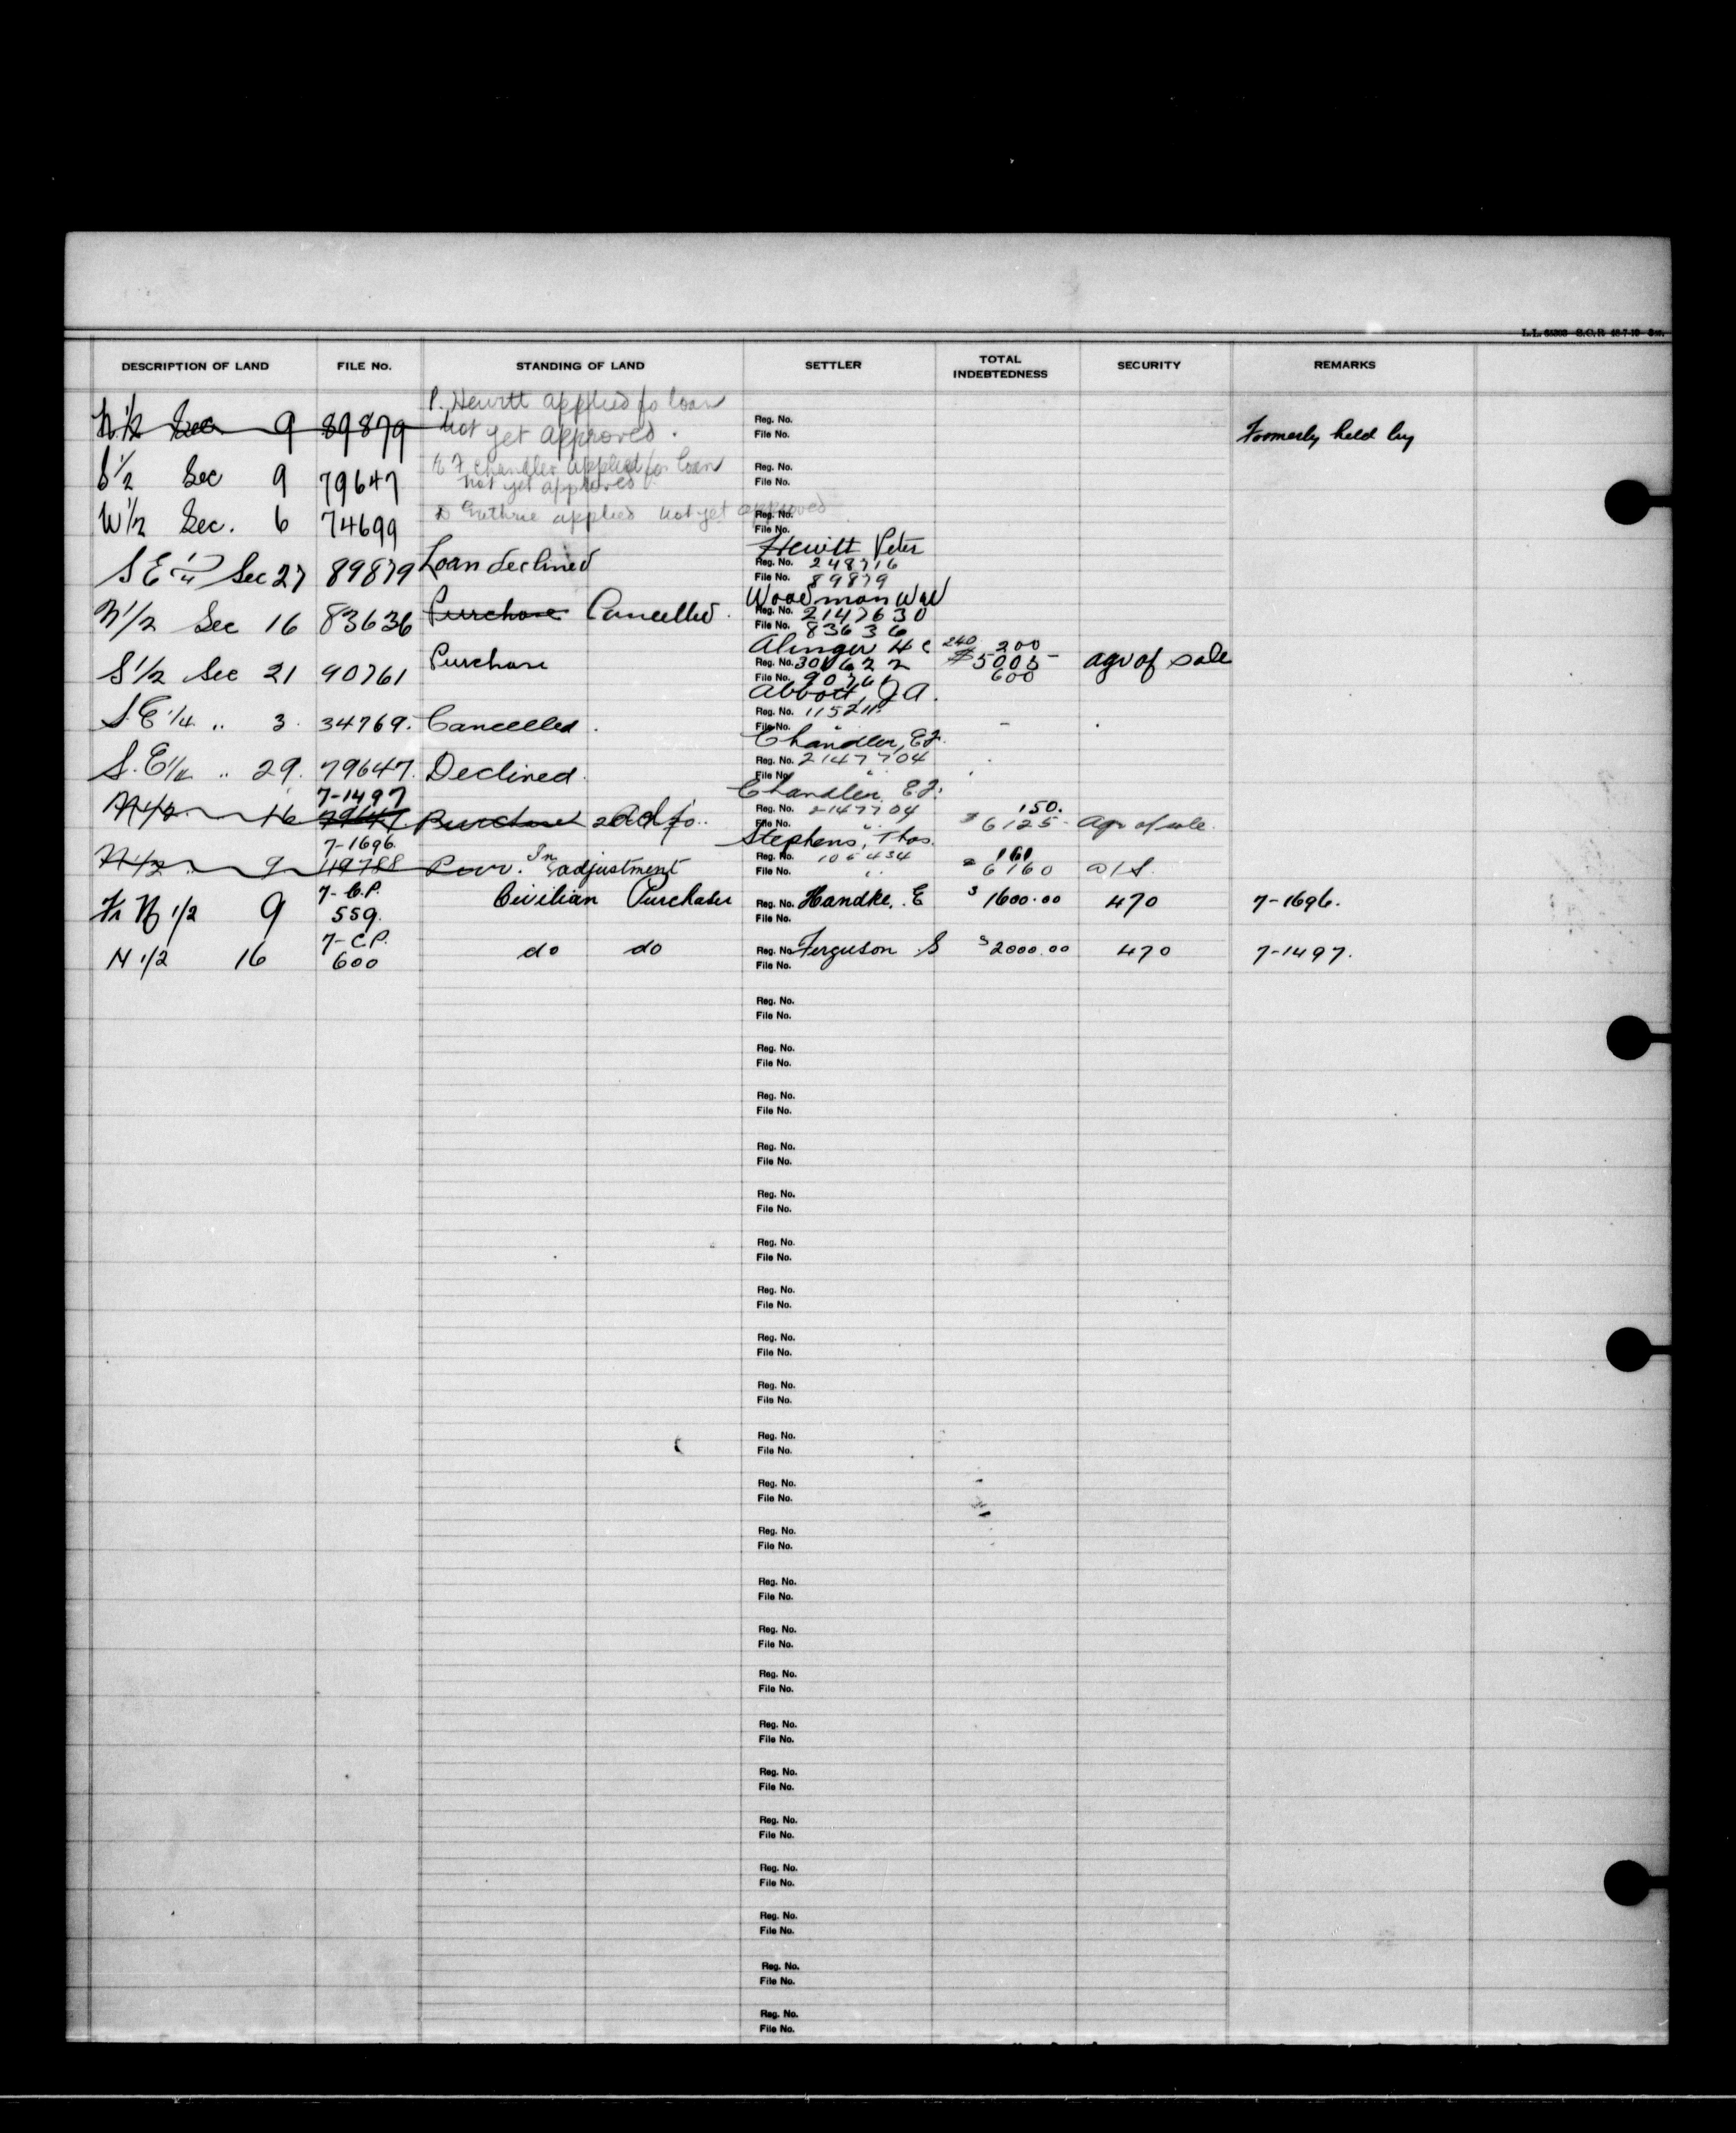 DESCRIPTION OF LAND FILE No. STANDING OF LAND SETTLER TOTAL INDEBTEDNESS SECURITY REMARKS
P. Hewitt applied fo loan
N 1/2 Sec 9 89879 not yet approved. Reg. No. File No. Formerly held by
S 1/2 Sec 9 79647 Chandler applied for loan Reg. No.
not yet approved File No.
W 1/2 Sec. 6 74699 D Guthrie applied not yet approved Reg. No. File No.
Hewitt Peter
S E 1/4 Sec 27 89879 Loan declined Reg. No. 248716
File No. 89879
Woodman
N 1/2 Sec 16 83636 Purchase Cancelled. Reg. No. 2147630
File No. 83636
Alinger H C 240 200
S 1/2 Sec 21 90761 Purchase Reg. No. 301622 $5005- agr of sale
File No. 90761 600
Abbott, J A.
S.E 1/4 .. 3. 34769. Cancelled. Reg. No. 115211
File No. "
Chandler, E.F.
S.E 1/4 .. 29. 79647. Declined. Reg. No. 2147704
File No. "
7-1497 Chandler E.F.
N 1/2 16 79647 Purchase Reg. No. 2147704 150.
File No. " $6125- Agr of sale.
7-1696. Stephens, Thos.
N 1/2 .. 9 119788 Purr. In adjustment Reg. No. 105434 161
File No. " $6160 a/S.
7-C.P. Civilian Purchaser
Fr N 1/2 9 559. Reg. No. Handke, E $1600.00 470 7-1696.
File No.
7-C.P.
N 1/2 16 600 do do Reg. No. Ferguson S $2000.00 470 7-1497.
File No.
Reg. No.
File No.
Reg. No.
File No.
Reg. No.
File No.
Reg. No.
File No.
Reg. No.
File No.
Reg. No.
File No.
Reg. No.
File No.
Reg. No.
File No.
Reg. No.
File No.
Reg. No.
File No.
Reg. No.
File No.
Reg. No.
File No.
Reg. No.
File No.
Reg. No.
File No.
Reg. No.
File No.
Reg. No.
File No.
Reg. No.
File No.
Reg. No.
File No.
Reg. No.
File No.
Reg. No.
File No.
Reg. No.
File No.
Reg. No.
File No.